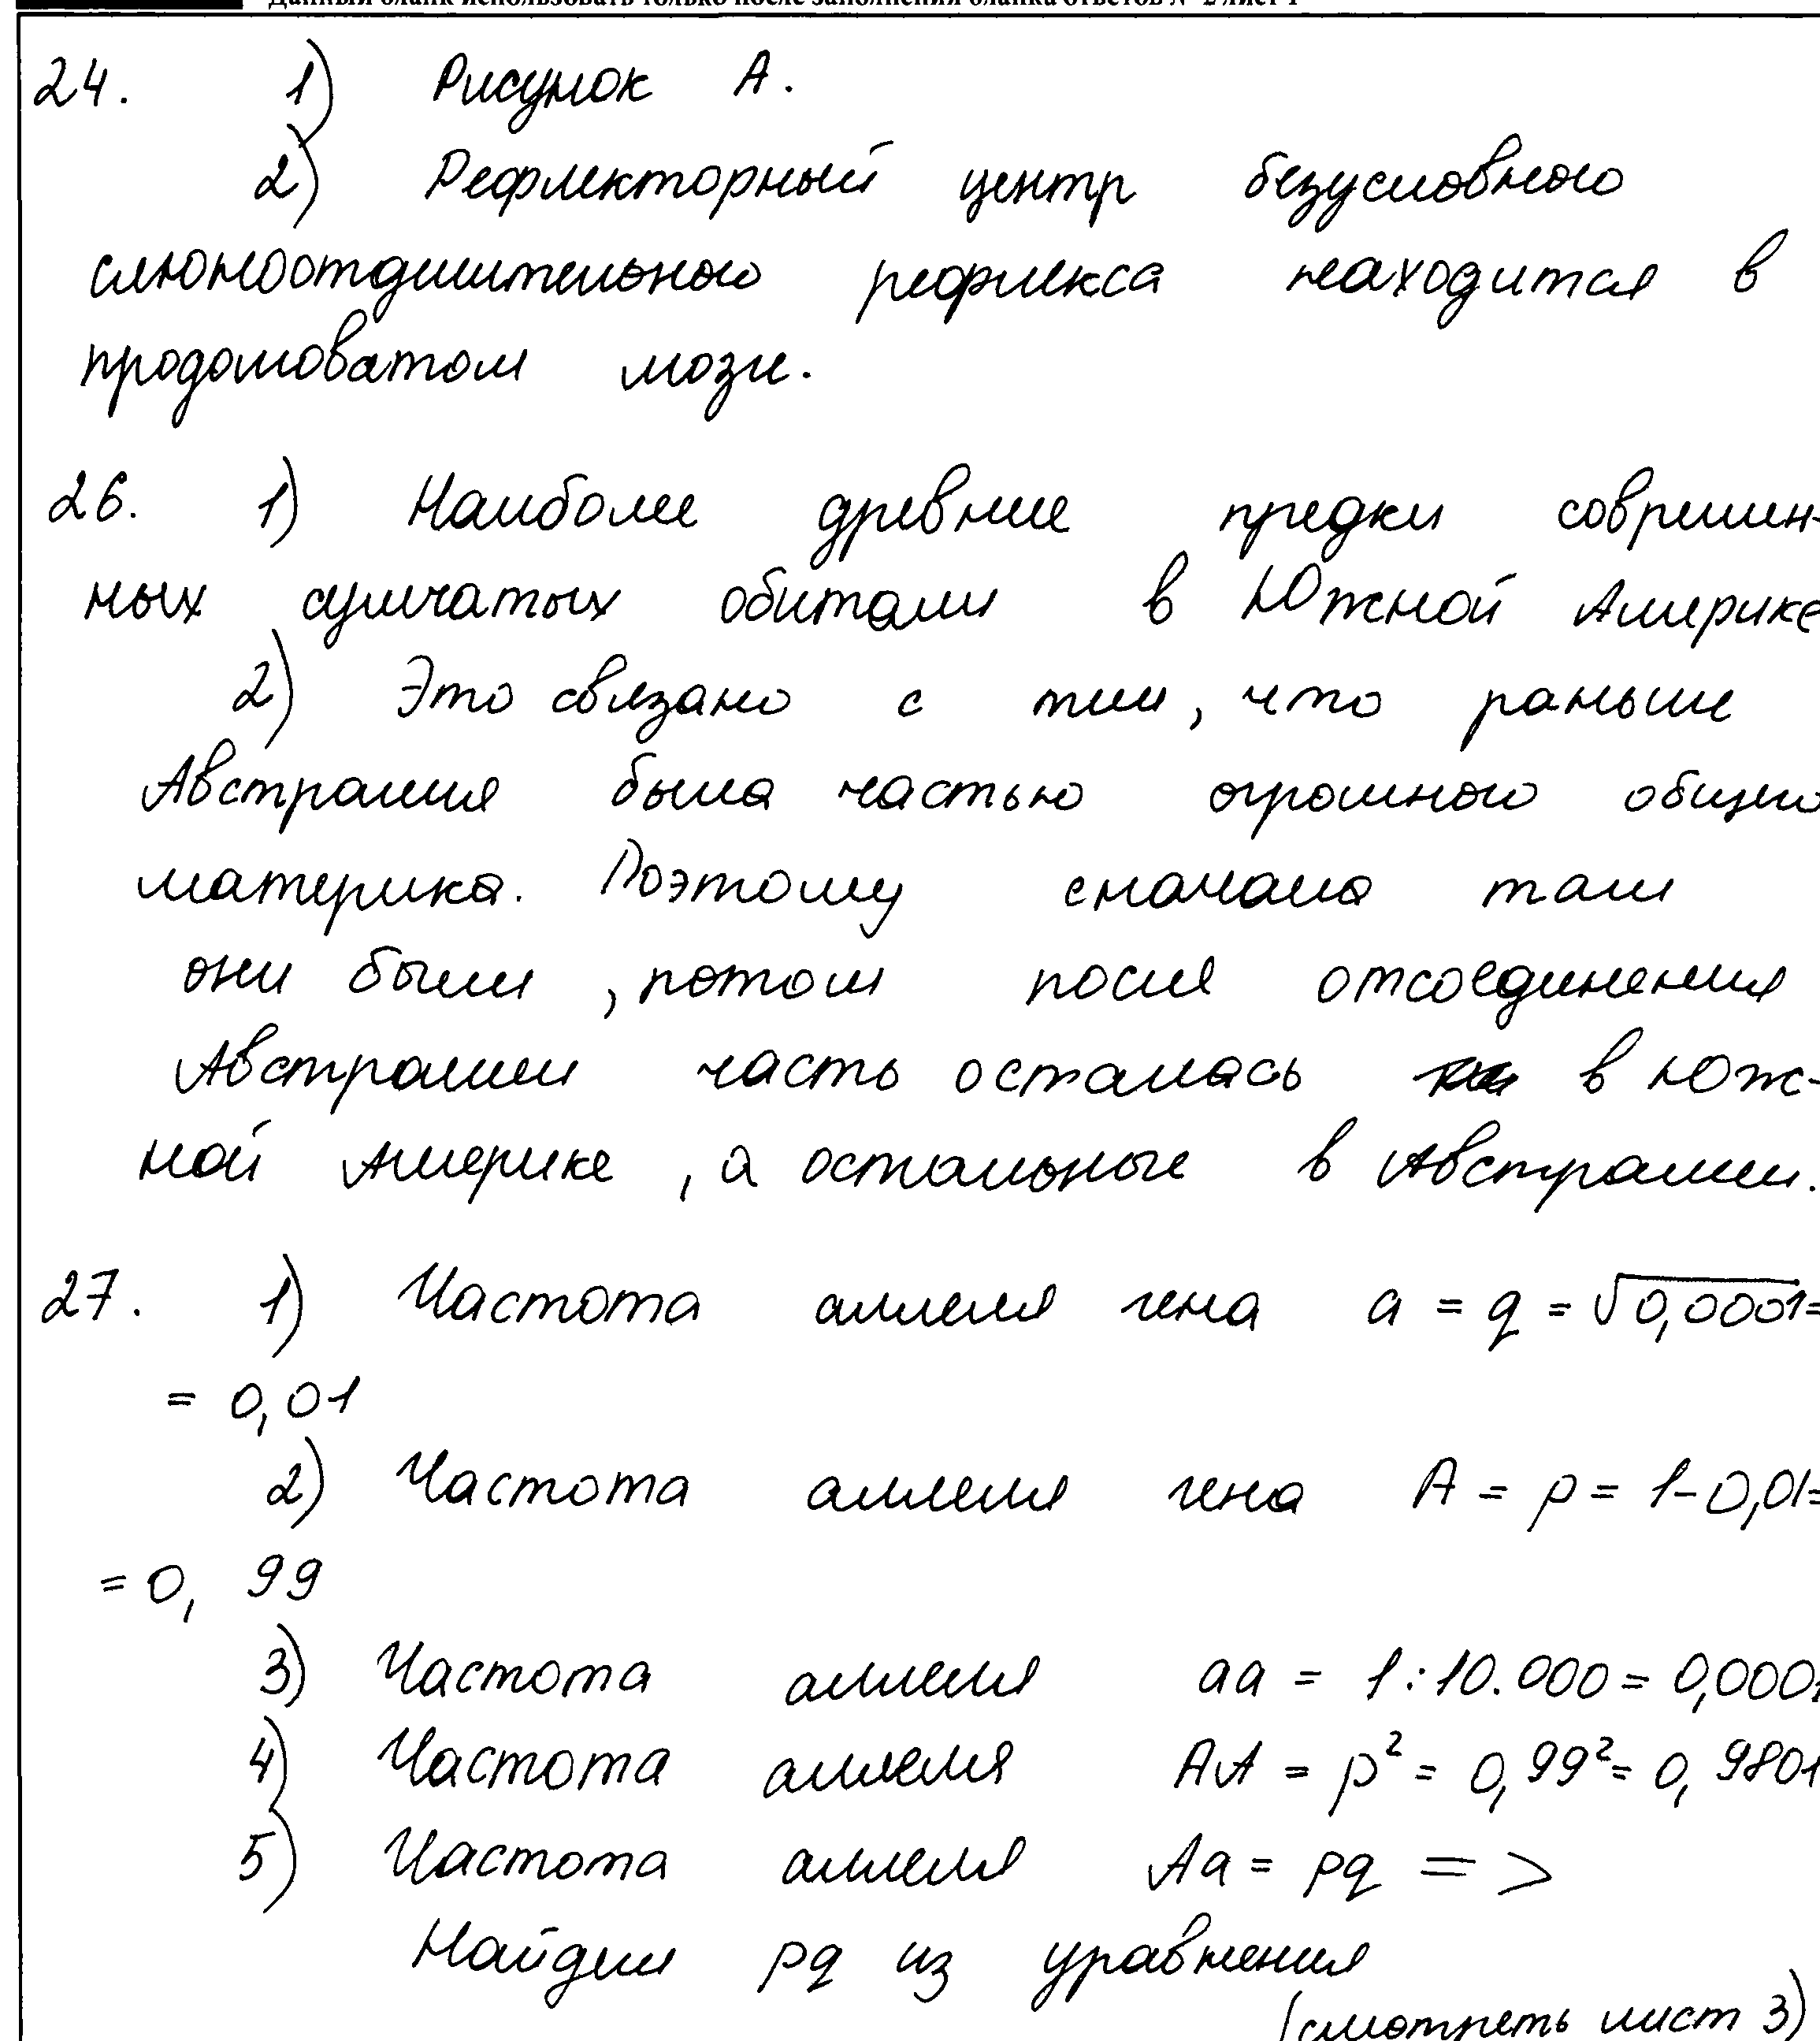 Данный бланк использовать только после заполнения бланка ответов № 2 лист 1
24. 1) Рисунок А.
2) Рефлекторный центр безусловного
слюноотделительного рефлекса находится в
продолговатом мозге.
26. 1) Наиболее древние предки современ-
ных сумчатых обитали в Южной Америке
2) Это связано с тем, что раньше
Австралия была частью огромного общего
материка. Поэтому сначала там
они были, потом после отсоединения
Австралии часть осталась в Юж-
ной Америке, а остальные в Австралии.
27. 1) Частота аллеля гена a = q = √0,0001=
= 0,01
2) Частота аллеля гена A = p = 1-0,01=
= 0, 99
3) Частота аллеля aa = 1:10.000 = 0,0001
4) Частота аллеля AA = p² = 0,99² = 0, 9801
5) Частота аллеля Aa = pq =>
Найдем pq из уравнения
(смотреть лист 3)